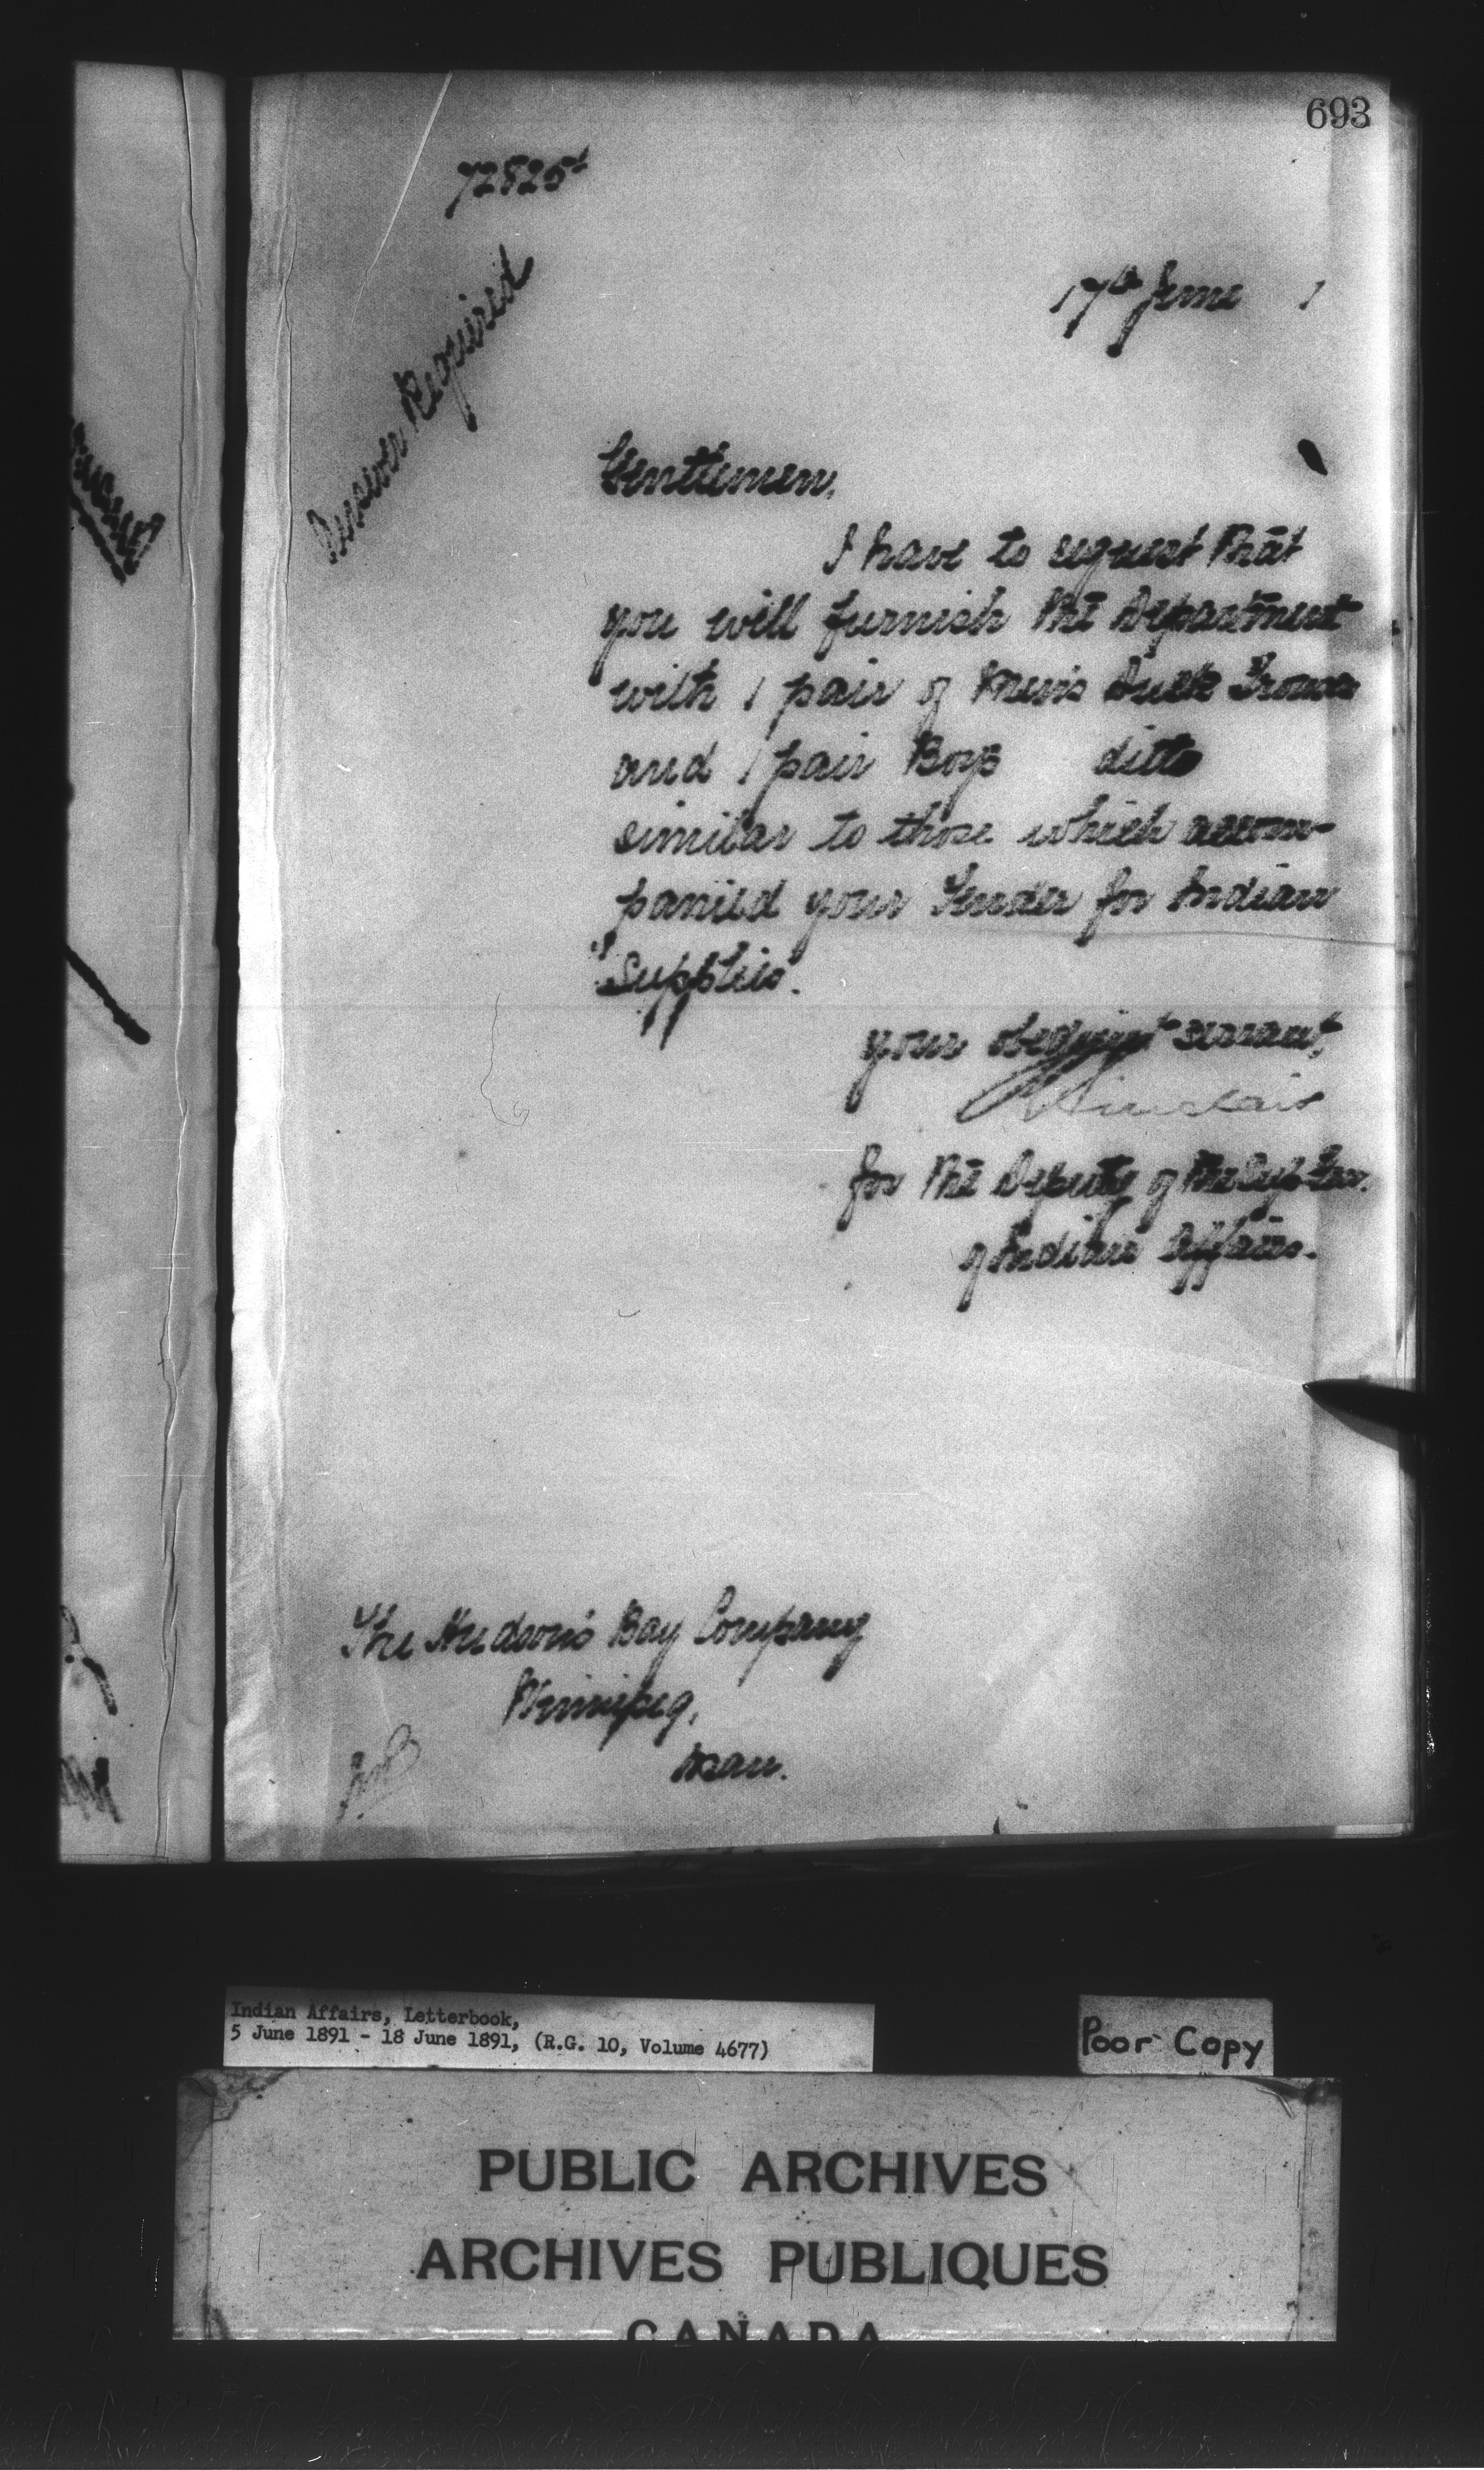 693
72825
17th June 1
Answer Required
Gentlemen,
I have to request that
you will furnish the Department
with 1 pair of Men's Duck Trousers
and 1 pair Boys ditto
similar to those which accom-
panied your Tender for Indian
Supplies.
your obedient servant,
Sinclair
for the Deputy of the Supt Gen.
of Indian Affairs.
The Hudson's Bay Company
Winnipeg,
Man.
Indian Affairs, Letterbook,
5 June 1891 - 18 June 1891, (R.G. 10, Volume 4677)
Poor Copy
PUBLIC ARCHIVES
ARCHIVES PUBLIQUES
CANADA